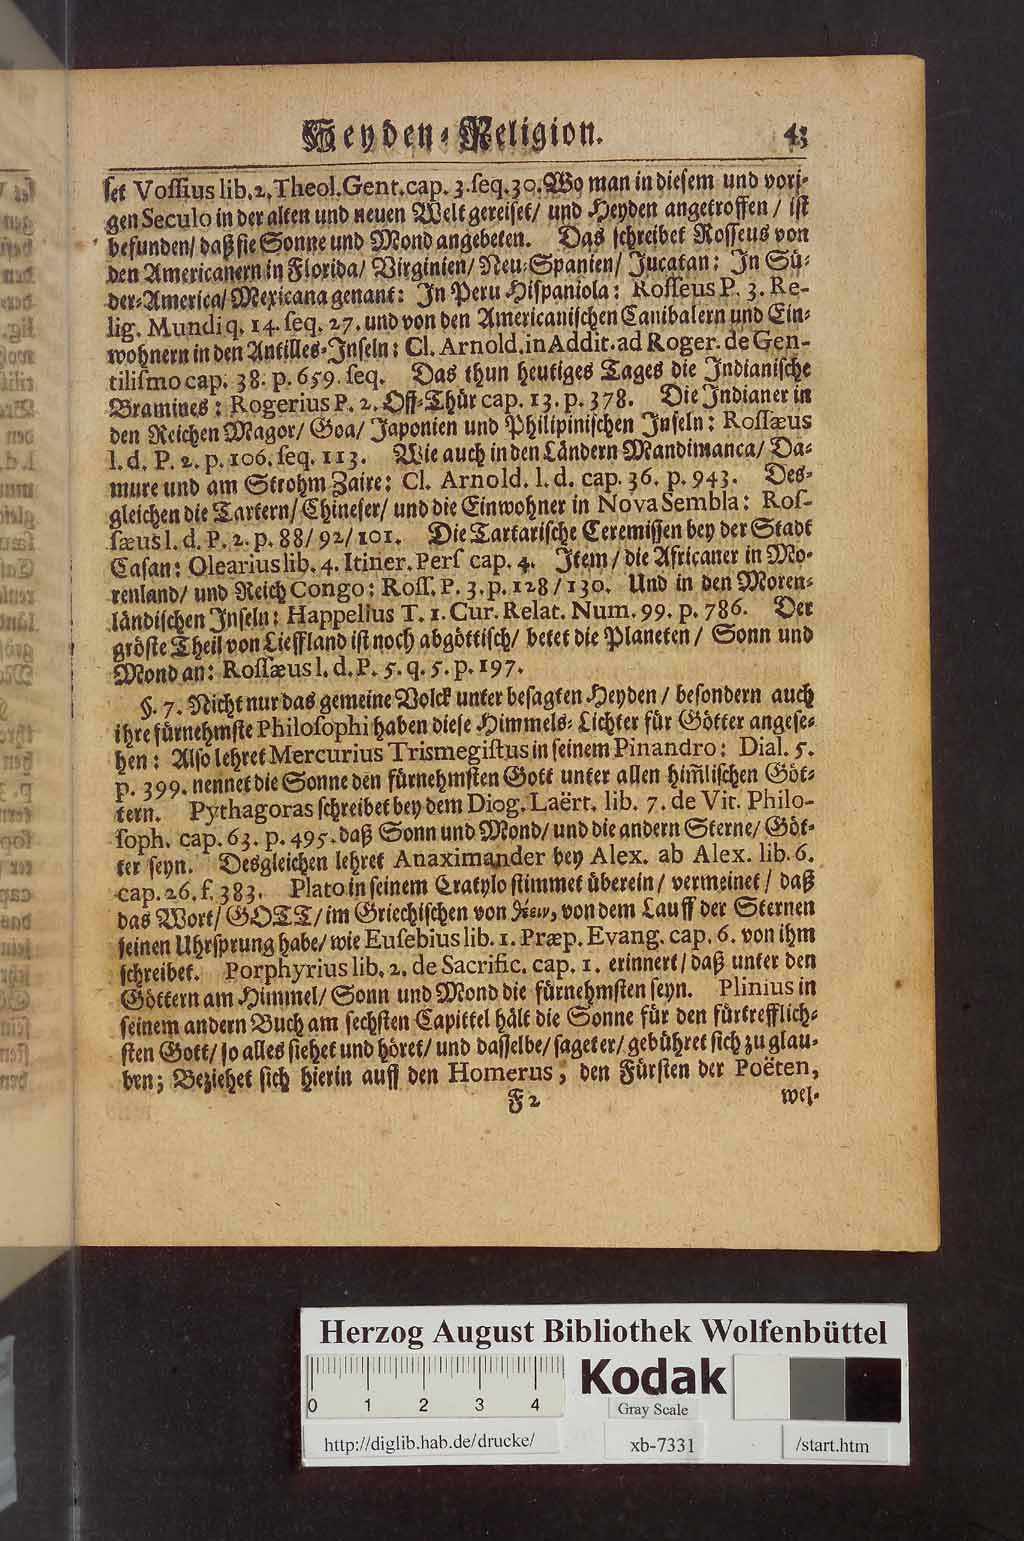 Heyden-Religion. 43
set Vossius lib. 2. Theol. Gent. cap. 3. seq. 30. Wo man in diesem und vori-
gen Seculo in der alten und neuen Welt gereiset/ und Heyden angetroffen / ist
befunden/ daß sie Sonne und Mond angebeten. Das schreibet Rosseus von
den Americanern in Florida/ Virginien/ Neu-Spanien/ Jucatan: In Sü-
der-America/ Mexicana genant: In Peru Hispaniola: Rosseus P. 3. Re-
lig. Mundi q. 14. seq. 27. und von den Americanischen Canibalern und Ein-
wohnern in den Antilles-Inseln: Cl. Arnold. in Addit. ad Roger. de Gen-
tilismo cap. 38. p. 659. seq. Das thun heutiges Tages die Indianische
Bramines: Rogerius P. 2. Off-Thür cap. 13. p. 378. Die Indianer in
den Reichen Magor/ Goa/ Japonien und Philipinischen Inseln: Rossæus
l. d. P. 2. p. 106. seq. 113. Wie auch in den Ländern Mandimanca/ Da-
mure und am Strohm Zaire: Cl. Arnold. l. d. cap. 36. p. 943. Des-
gleichen die Tartern/ Chineser/ und die Einwohner in Nova Sembla: Ros-
sæus l. d. P. 2. p. 88/ 92/ 101. Die Tartarische Ceremissen bey der Stadt
Casan: Olearius lib. 4. Itiner. Pers cap. 4. Item/ die Africaner in Mo-
renland/ und Reich Congo: Ross. P. 3. p. 128 / 130. Und in den Moren-
ländischen Inseln: Happelius T. 1. Cur. Relat. Num. 99. p. 786. Der
gröste Theil von Lieffland ist noch abgöttisch/ betet die Planeten / Sonn und
Mond an: Rossæus l. d. P. 5. q. 5. p. 197.
§. 7. Nicht nur das gemeine Volck unter besagten Heyden / besondern auch
ihre fürnehmste Philosophi haben diese Himmels-Lichter für Götter angese-
hen: Also lehret Mercurius Trismegistus in seinem Pinandro: Dial. 5.
p. 399. nennet die Sonne den fürnehmsten Gott unter allen him̃lischen Göt-
tern. Pythagoras schreibet bey dem Diog. Laërt. lib. 7. de Vit. Philo-
soph. cap. 63. p. 495. daß Sonn und Mond/ und die andern Sterne/ Göt-
ter seyn. Desgleichen lehret Anaximander bey Alex. ab Alex. lib. 6.
cap. 26. f. 383. Plato in seinem Cratylo stimmet überein / vermeinet / daß
das Wort/ GOTT/ im Griechischen von θέειν, von dem Lauff der Sternen
seinen Uhrsprung habe/ wie Eusebius lib. 1. Præp. Evang. cap. 6. von ihm
schreibet. Porphyrius lib. 2. de Sacrific. cap. 1. erinnert / daß unter den
Göttern am Himmel/ Sonn und Mond die fürnehmsten seyn. Plinius in
seinem andern Buch am sechsten Capittel hält die Sonne für den fürtrefflich-
sten Gott/ so alles siehet und höret/ und dasselbe/ saget er/ gebühret sich zu glau-
ben; Beziehet sich hierin auff den Homerus, den Fürsten der Poëten,
F 2 wel-
Herzog August Bibliothek Wolfenbüttel
0 1 2 3 4
Kodak
Gray Scale
http://diglib.hab.de/drucke/ xb-7331 /start.htm